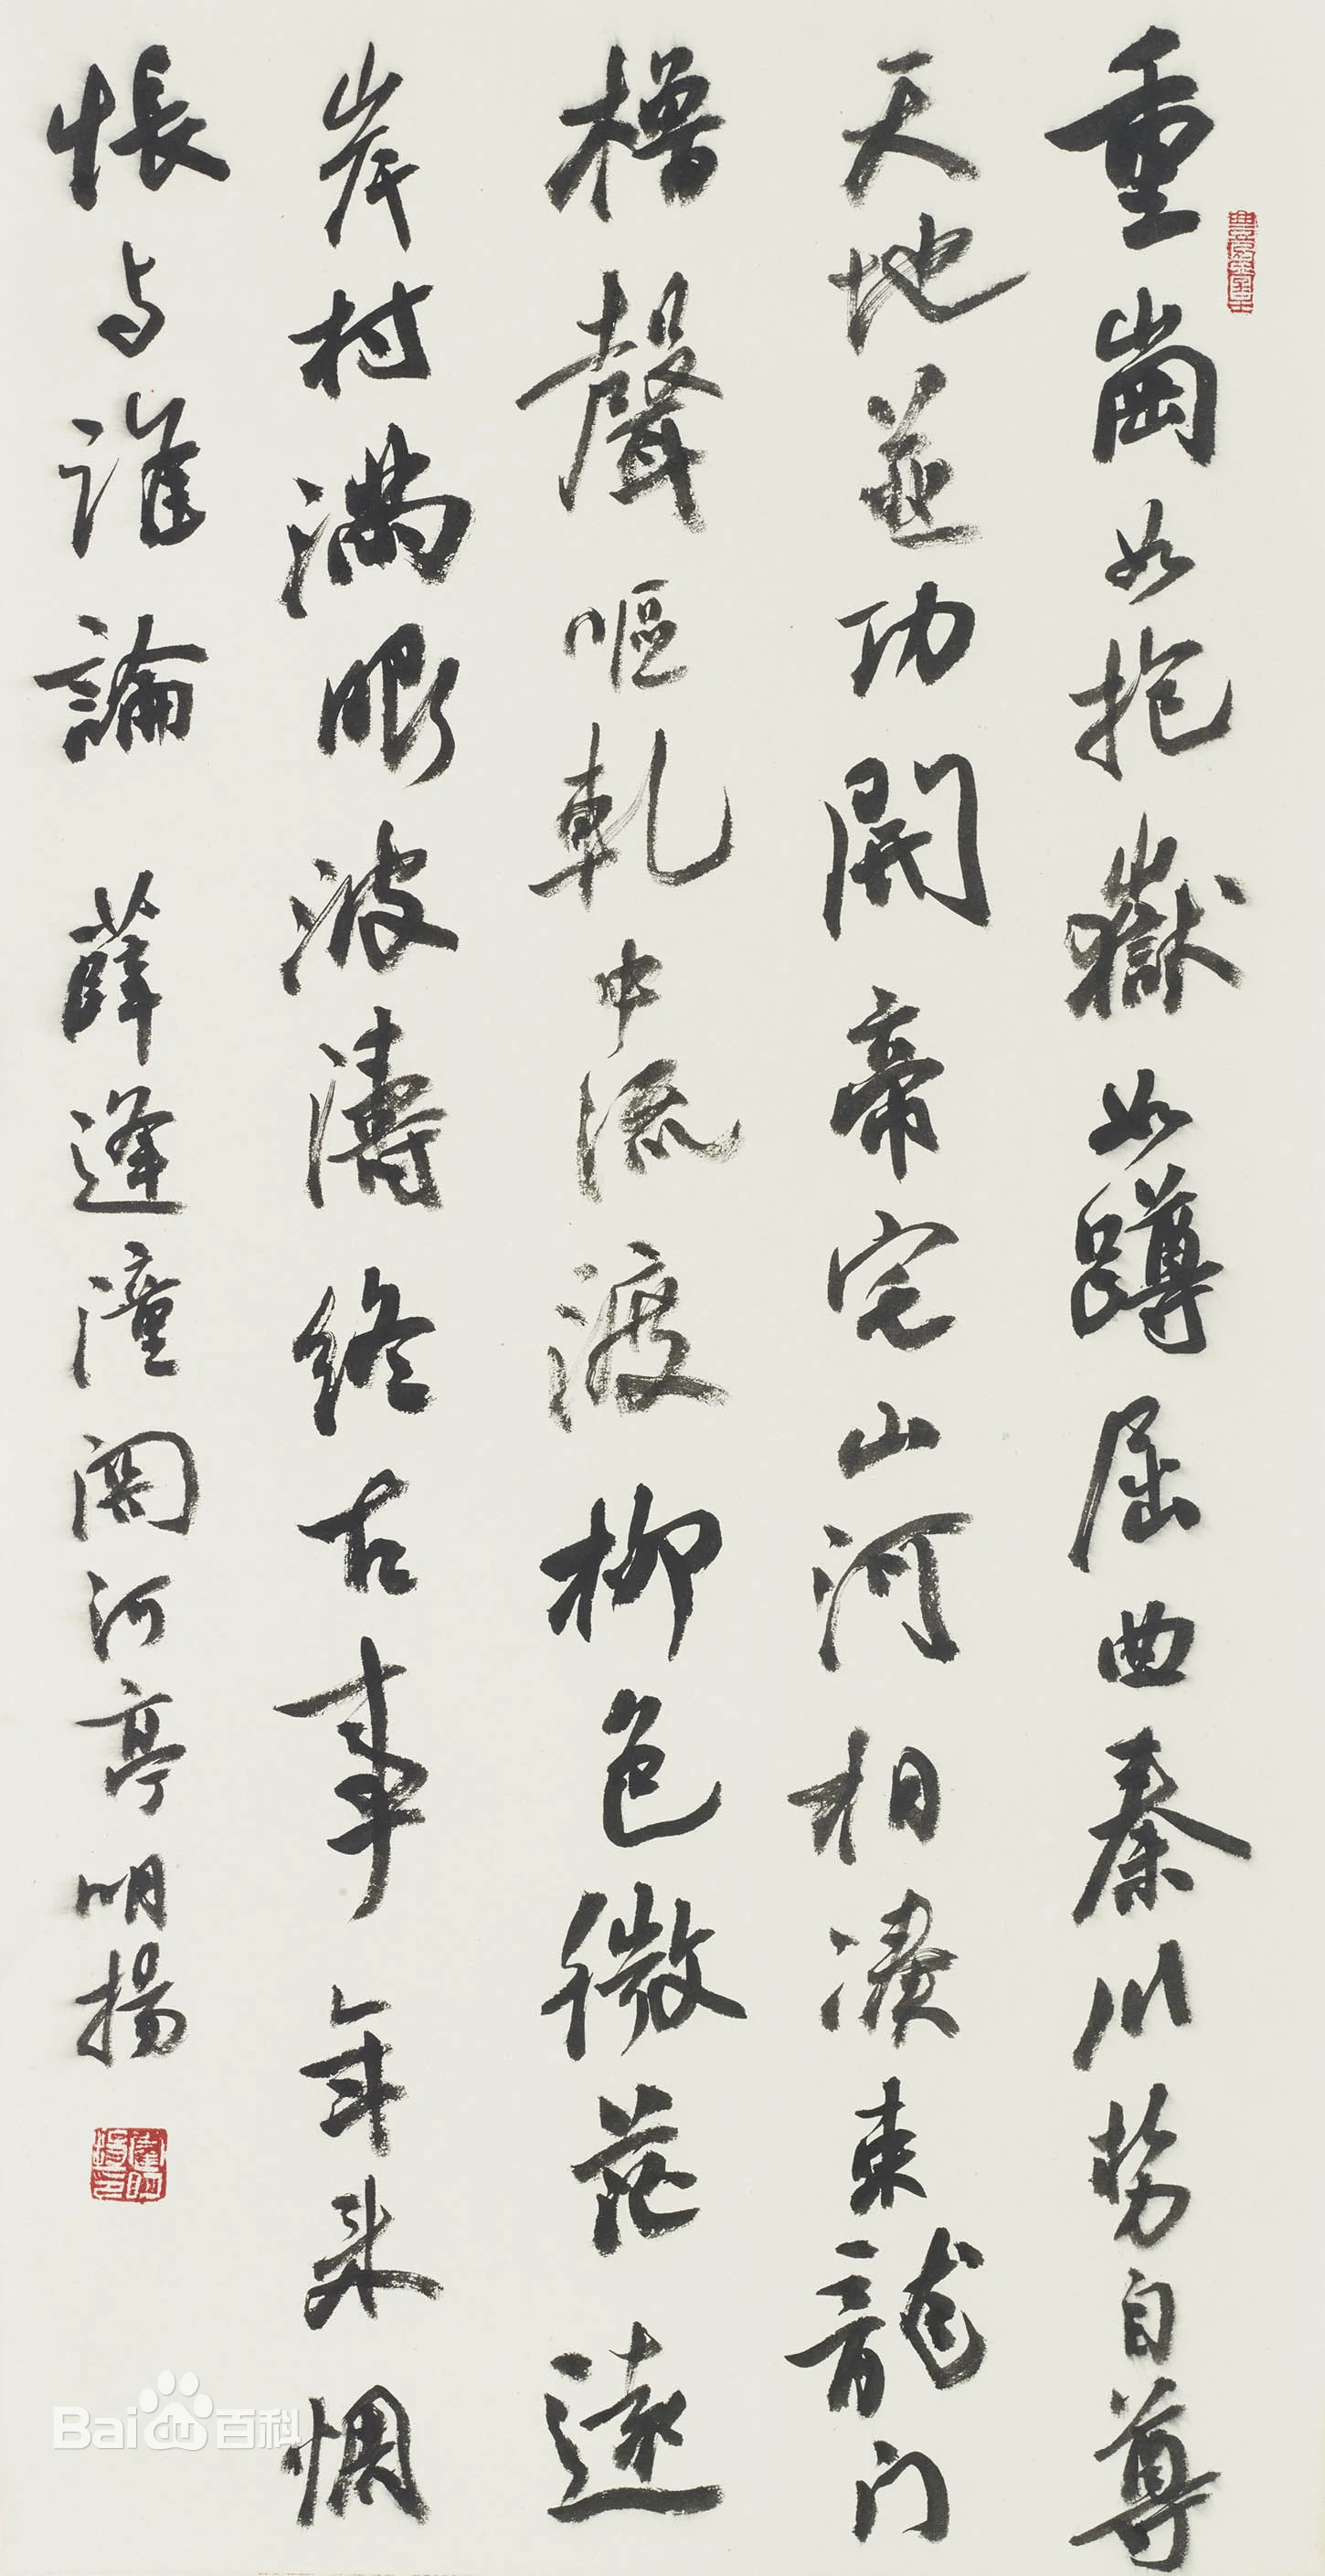 重崗如抱嶽如蹲屈曲秦川勢自尊
天地並功開帝宅山河相湊束龍门
櫓聲嘔軋中流渡柳色微茫遠
岸村滿眼波濤終古事年来惆
悵与誰論 薛逢潼関河亭明揚
Bai 百科